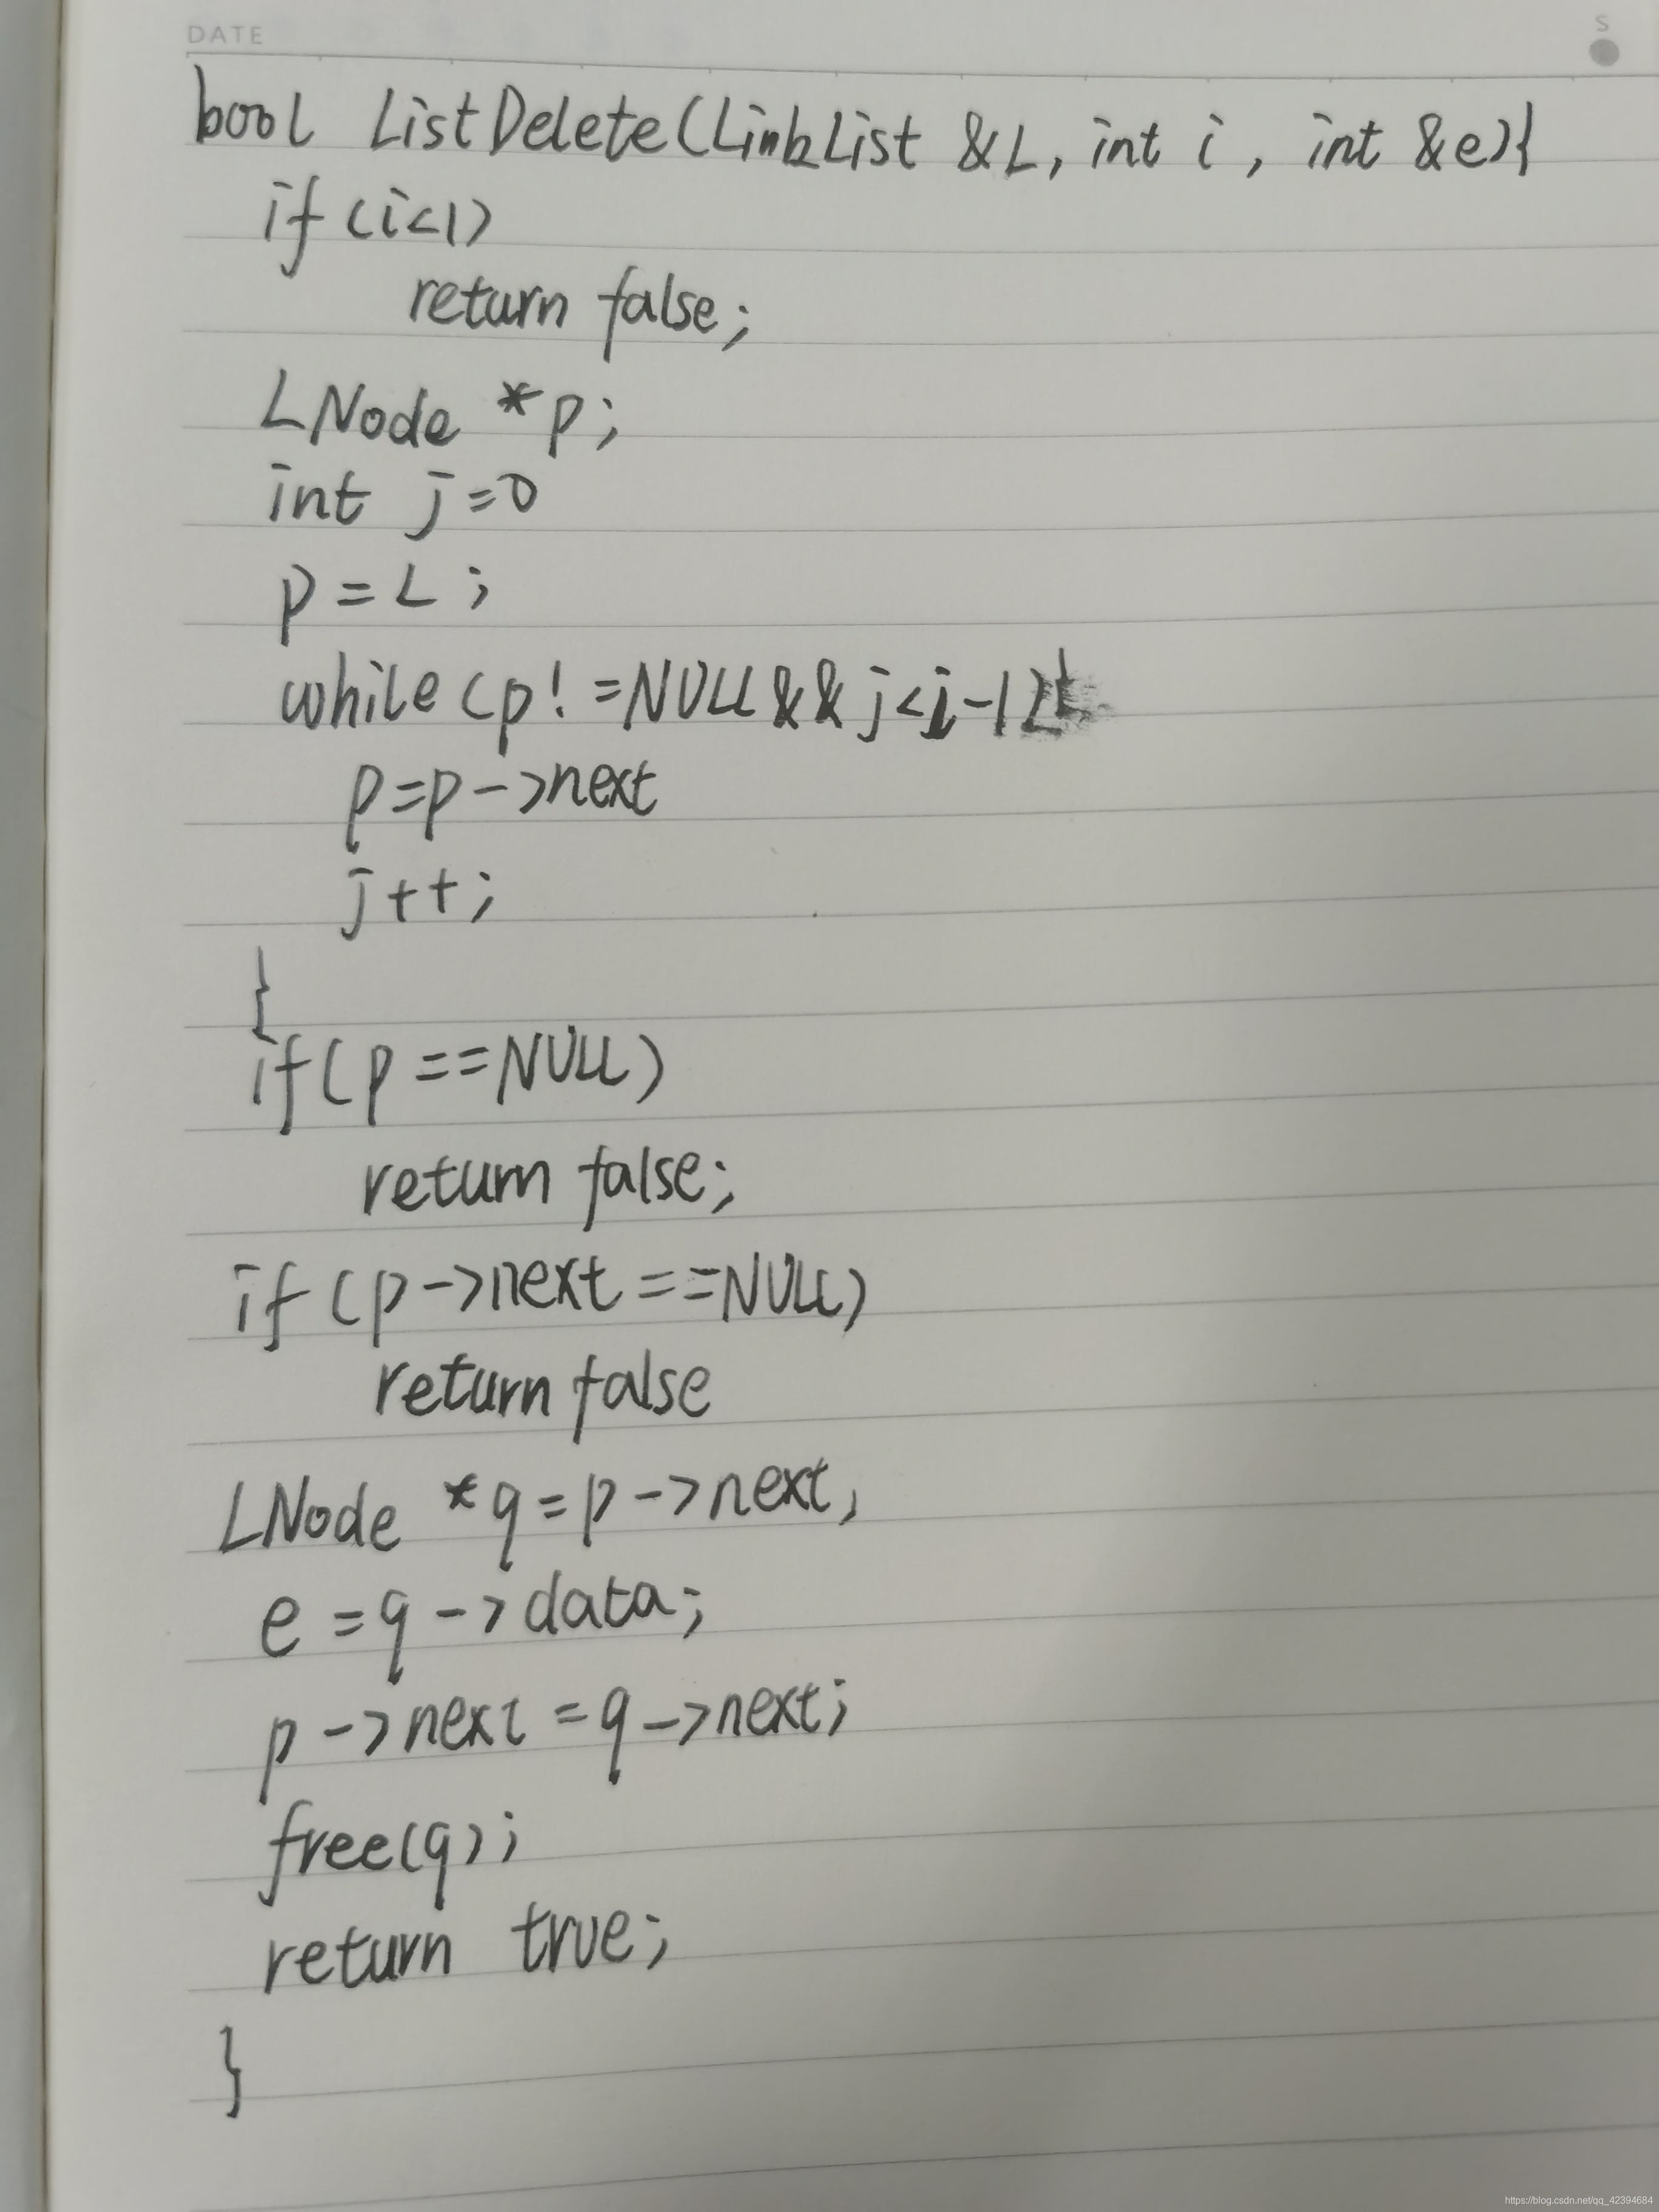 DATE
S
bool ListDelete(LinkList &L, int i, int &e){
if(i<1)
return false;
LNode *p;
int j=0
p=L;
while(p!=NULL&&j<i-1){
p=p->next
j++;
}
if(p==NULL)
return false;
if(p->next==NULL)
return false
LNode *q=p->next,
e=q->data;
p->next=q->next;
free(q);
return true;
}
https://blog.csdn.net/qq_42394684